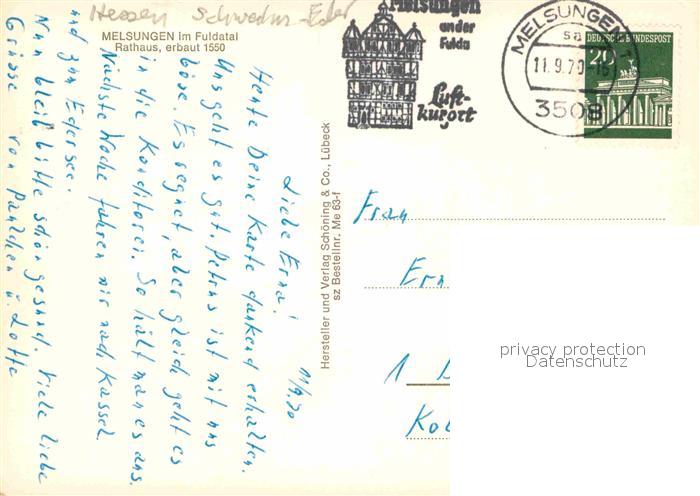 Hessen Schwalm-Eder
MELSUNGEN im Fuldatal
Rathaus, erbaut 1550
Melsungen
an der
Fulda
Luft-
kurort
MELSUNGEN
sa
11.9.70-16
3508
DEUTSCHE BUNDESPOST
20
11/9.70
Liebe Erna!
Heute Deine Karte dankend erhalten.
Uns geht es gut. Petrus ist mit uns
böse. Es regnet, aber gleich geht es
in die Konditorei. So hält man es aus.
Nächste Woche fahren wir nach Kassel
und zum Edersee.
Nun bleib bitte schön gesund. Viele liebe
Grüsse von Paulchen u. Lotte
Hersteller und Verlag Schöning & Co., Lübeck
sz Bestellnr. Me 63-f
Frau
Ern
1 B
Ko
privacy protection
Datenschutz